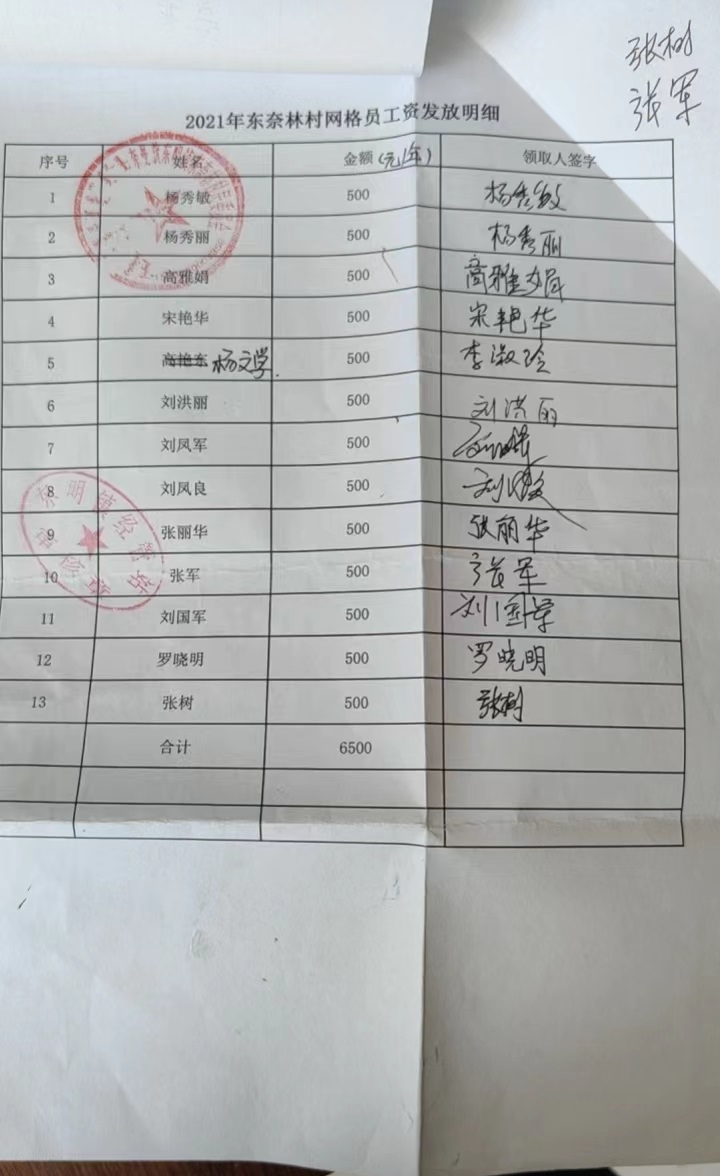 张树
张军
2021年东奈林村网格员工资发放明细
序号 姓名 金额(元/年) 领取人签字
1 杨秀敏 500 杨秀敏
2 杨秀丽 500 杨秀丽
3 高雅娟 500 高雅娟
4 宋艳华 500 宋艳华
5 高艳东 杨文学. 500 李淑玲
6 刘洪丽 500 刘洪丽
7 刘凤军 500
8 刘凤良 500
9 张丽华 500 张丽华
10 张军 500 张军
11 刘国军 500 刘国军
12 罗晓明 500 罗晓明
13 张树 500 张树
合计 6500
东明镇经管站
审核章